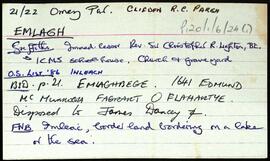 21/22 Omey Par. CLIFDEN R.C. PARISH
P120/1/6/24(7)
EMLAGH
Griffiths Immed. Lessor Rev. Sir Christopher R. Lighton, Bt.
ICMS school house, Church & graveyard
O.S. Lett '86 INLEACH
BID. p. 21. EMLAGHBEGE. 1641 EDMUND
MC MURROUGH O FLAHARTYE
Disposed to James Darcy &
FNB Imleac, border land bordering on a lake
or the sea.